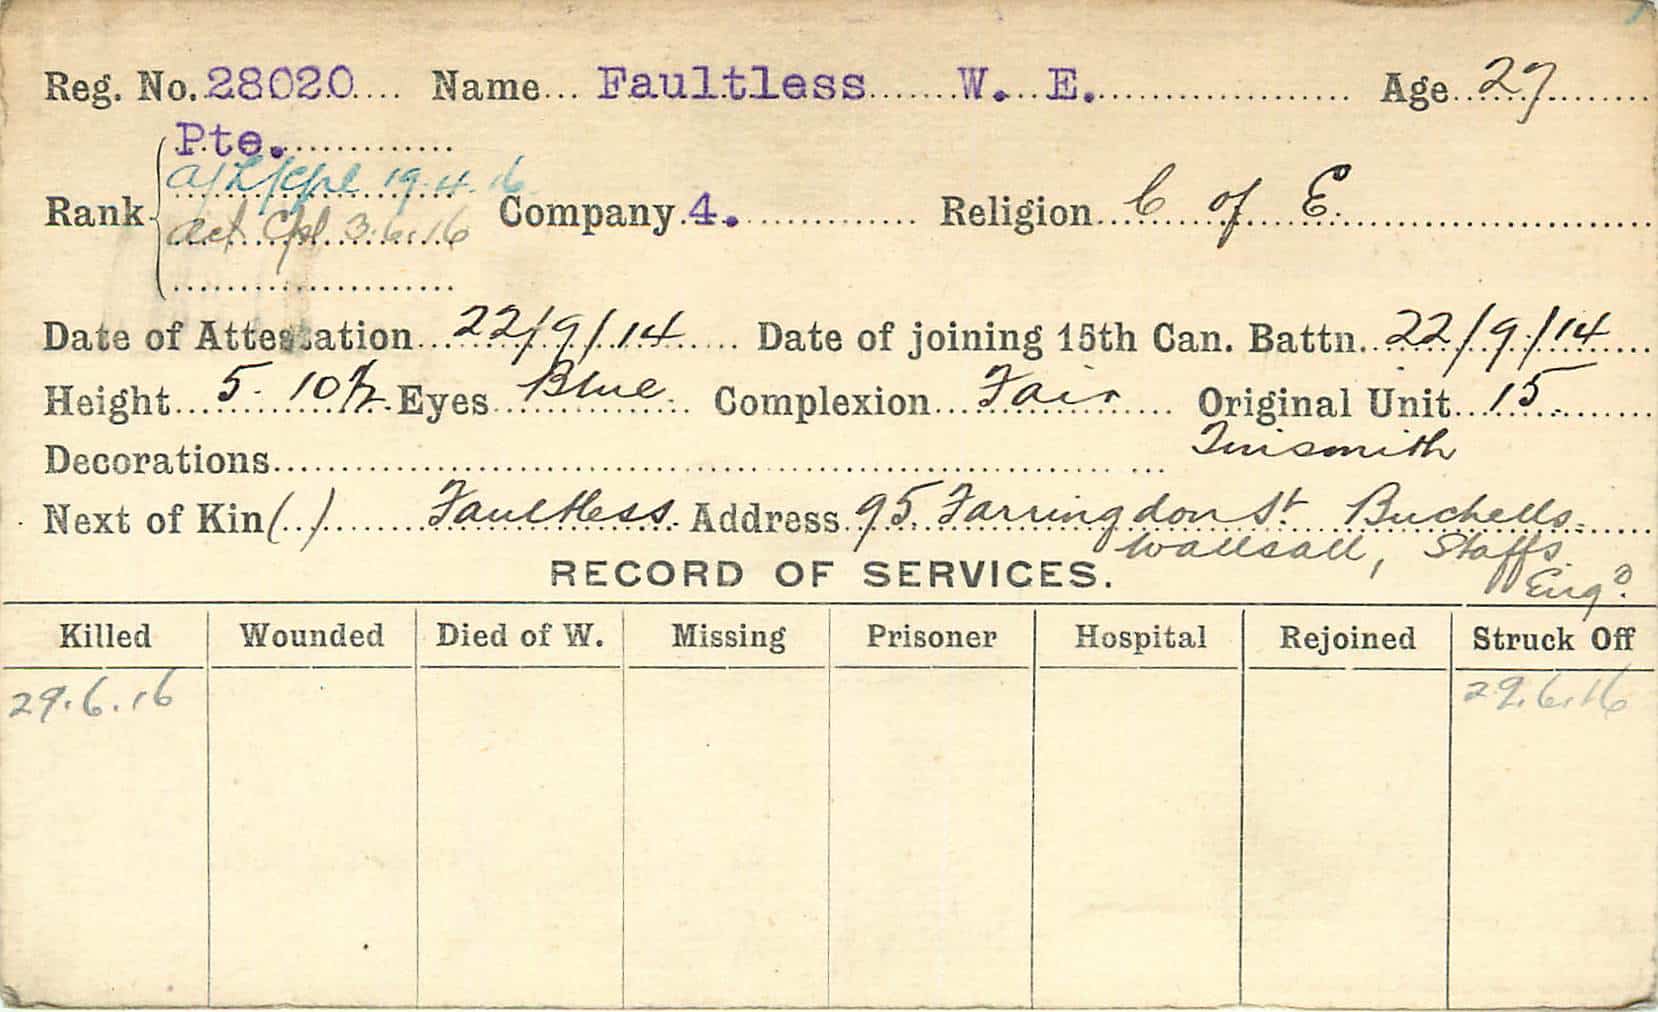 Reg. No. 28020 Name Faultless W. E. Age 27
Pte.
a/L/Cpl 19.4.16
Rank Company 4. Religion C of E.
act Cpl 3.6.16
Date of Attestation 22/9/14 Date of joining 15th Can. Battn. 22/9/14
Height 5. 10½ Eyes Blue. Complexion Fair Original Unit 15
Tinsmith
Decorations
Next of Kin ( ) Faultless. Address 95 Farringdon St Buchells.
Wallsall, Staffs
RECORD OF SERVICES.
Engd.
Killed Wounded Died of W. Missing Prisoner Hospital Rejoined Struck Off
29.6.16 29.6.16